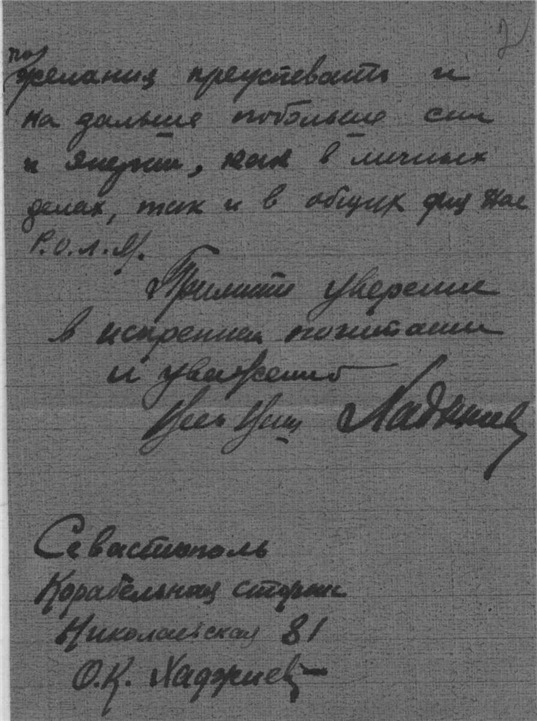 2
пожелания преуспевать и
на дальше побольше сил
и энергии, как в личных
делах, так и в общих для нас
Р.О.Л.Я.
Примите уверение
в искреннем почитании
и уважении
Хаджиев
Севастополь
Корабельная сторона
Николаевская 81
О.К. Хаджиев